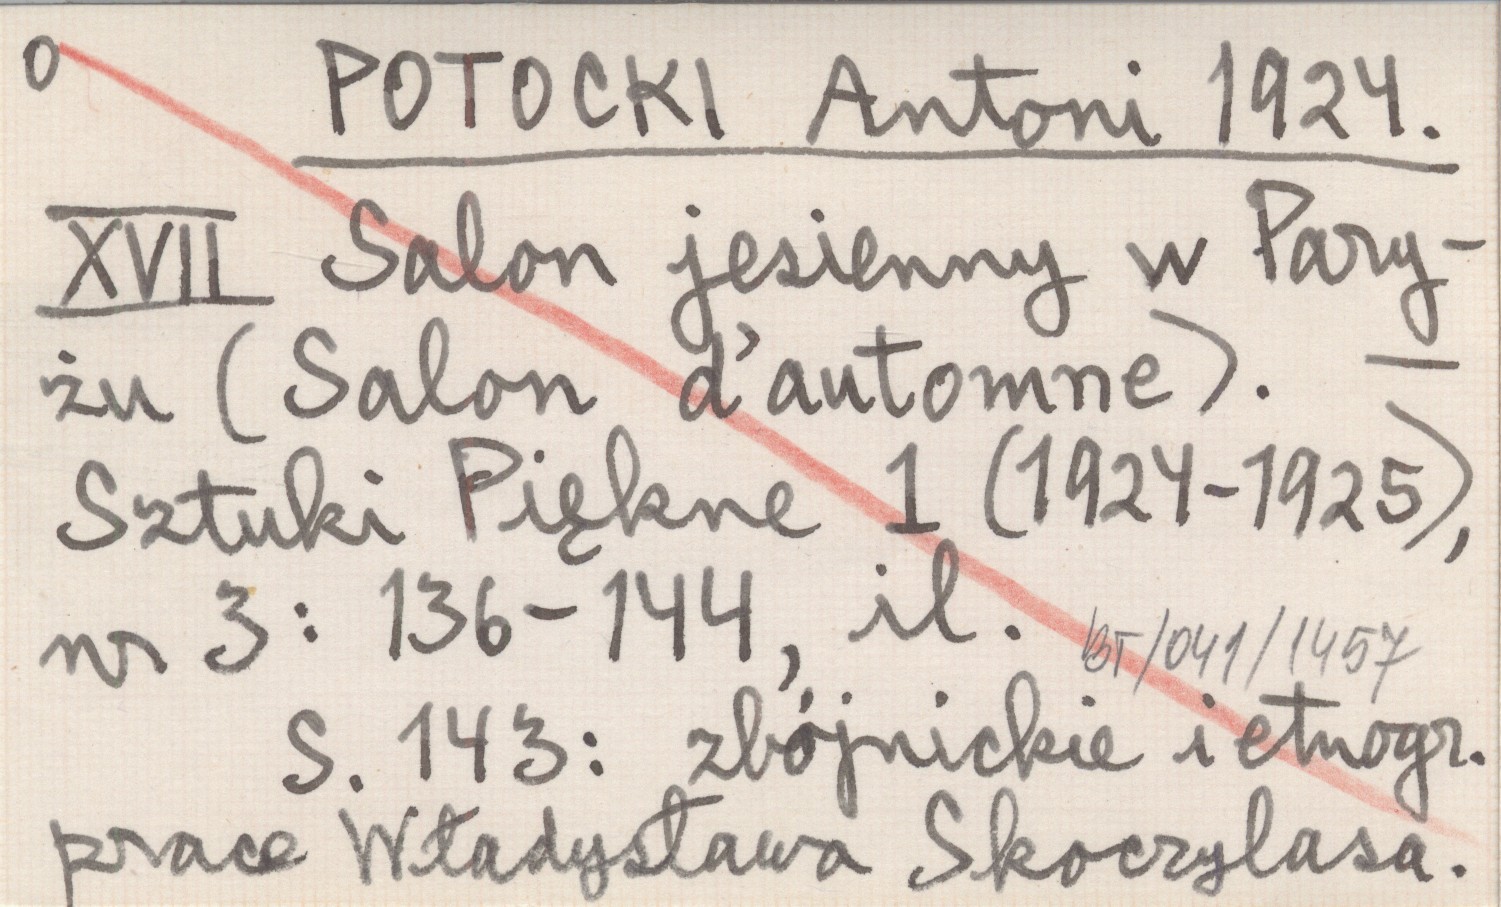 O POTOCKI Antoni 1924.
XVII Salon jesienny w Pary-
żu (Salon d'automne). —
Sztuki Piękne 1 (1924-1925),
nr 3: 136-144, il.
BT/041/1457
S. 143: zbójnickie i etnogr.
prace Władysława Skoczylasa.